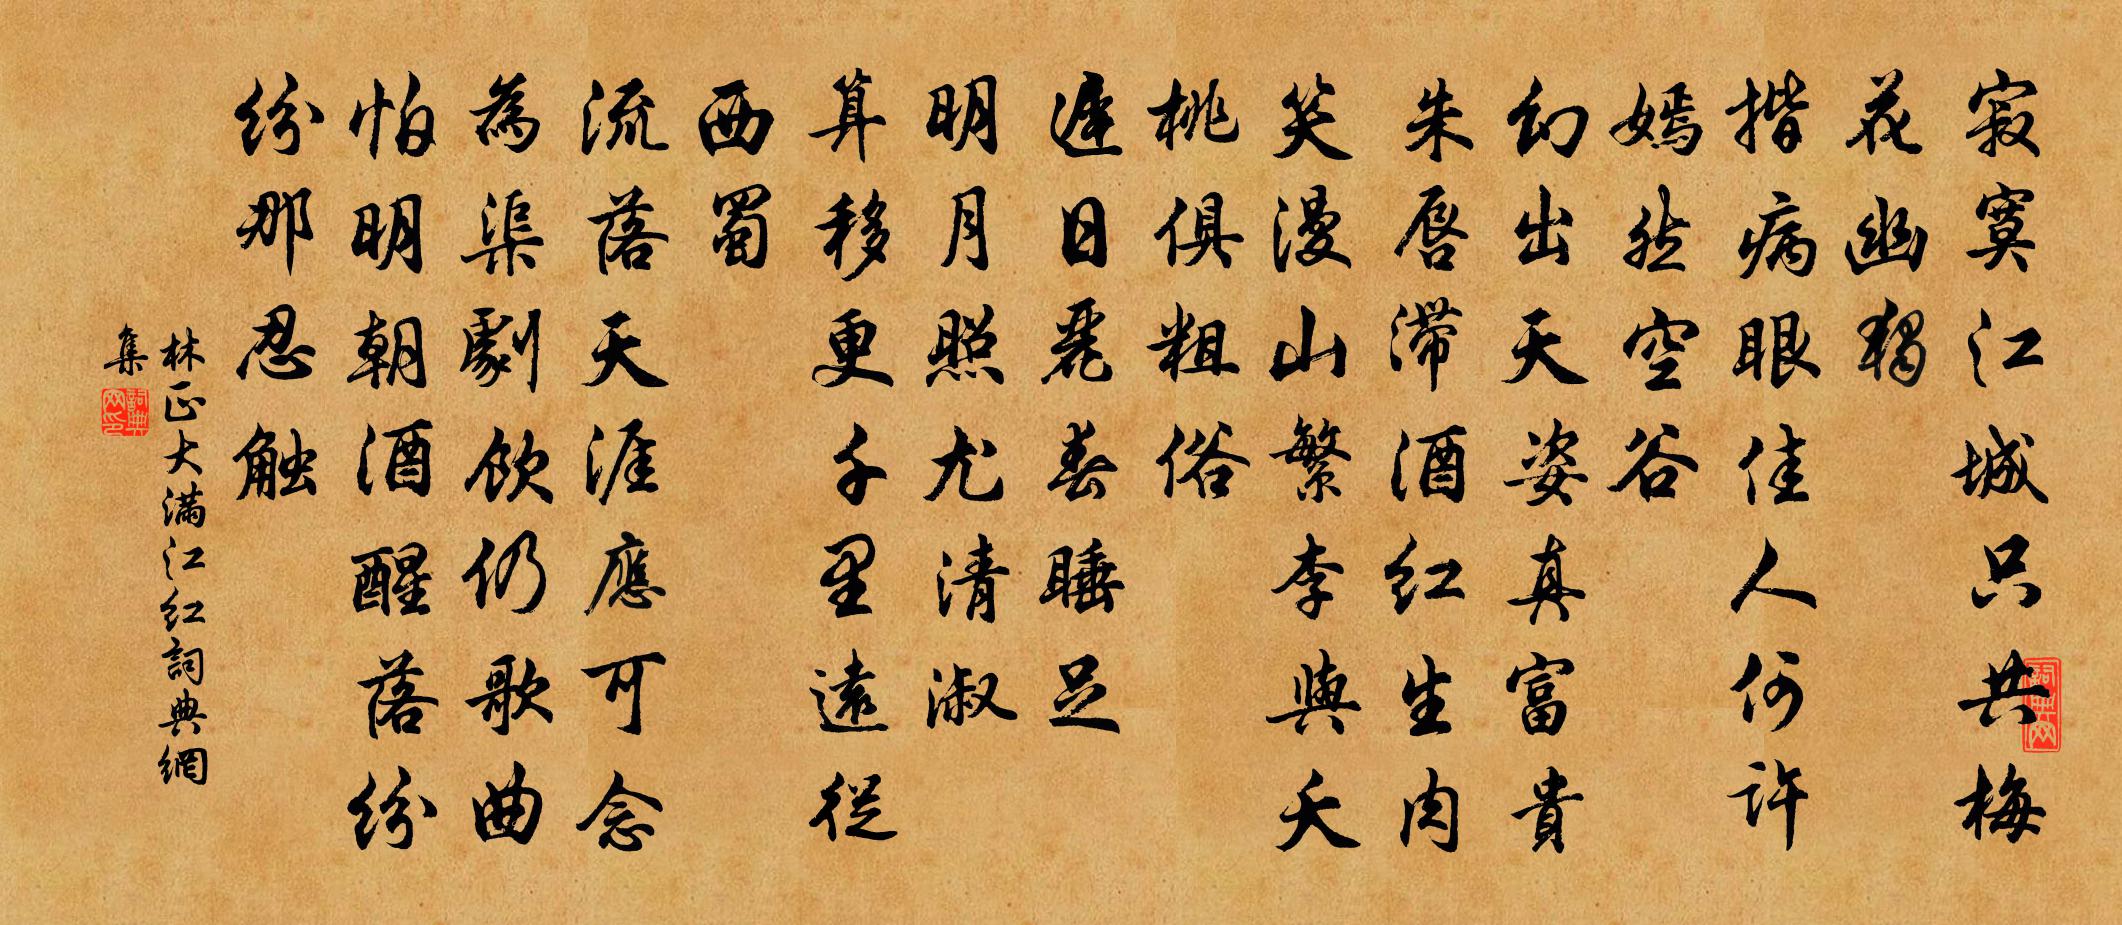 寂寞江城只共梅
花幽獨
揩病眼佳人何許
嫣然空谷
幻出天姿真富貴
朱唇滯酒紅生肉
笑漫山繁李與夭
桃俱粗俗
遲日麗春睡足
明月照尤清淑
算移更千里遠從
西蜀
流落天涯應可念
為渠劇飲仍歌曲
怕明朝酒醒落紛
紛那忍触
林正大满江红詞典網
集
詞典网印
詞典网